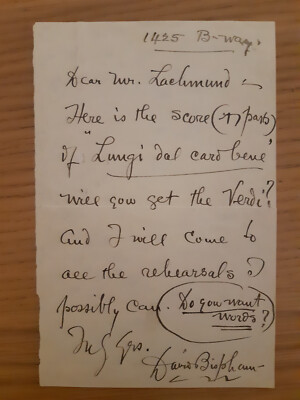 1425 B-way.
Dear Mr. Lachmund –
Here is the score (& parts)
of "Lungi dal caro bene"
will you get the Verdi?
and I will come to
see the rehearsals I
possibly can. Do you want
words?
Yrs.
David Bispham